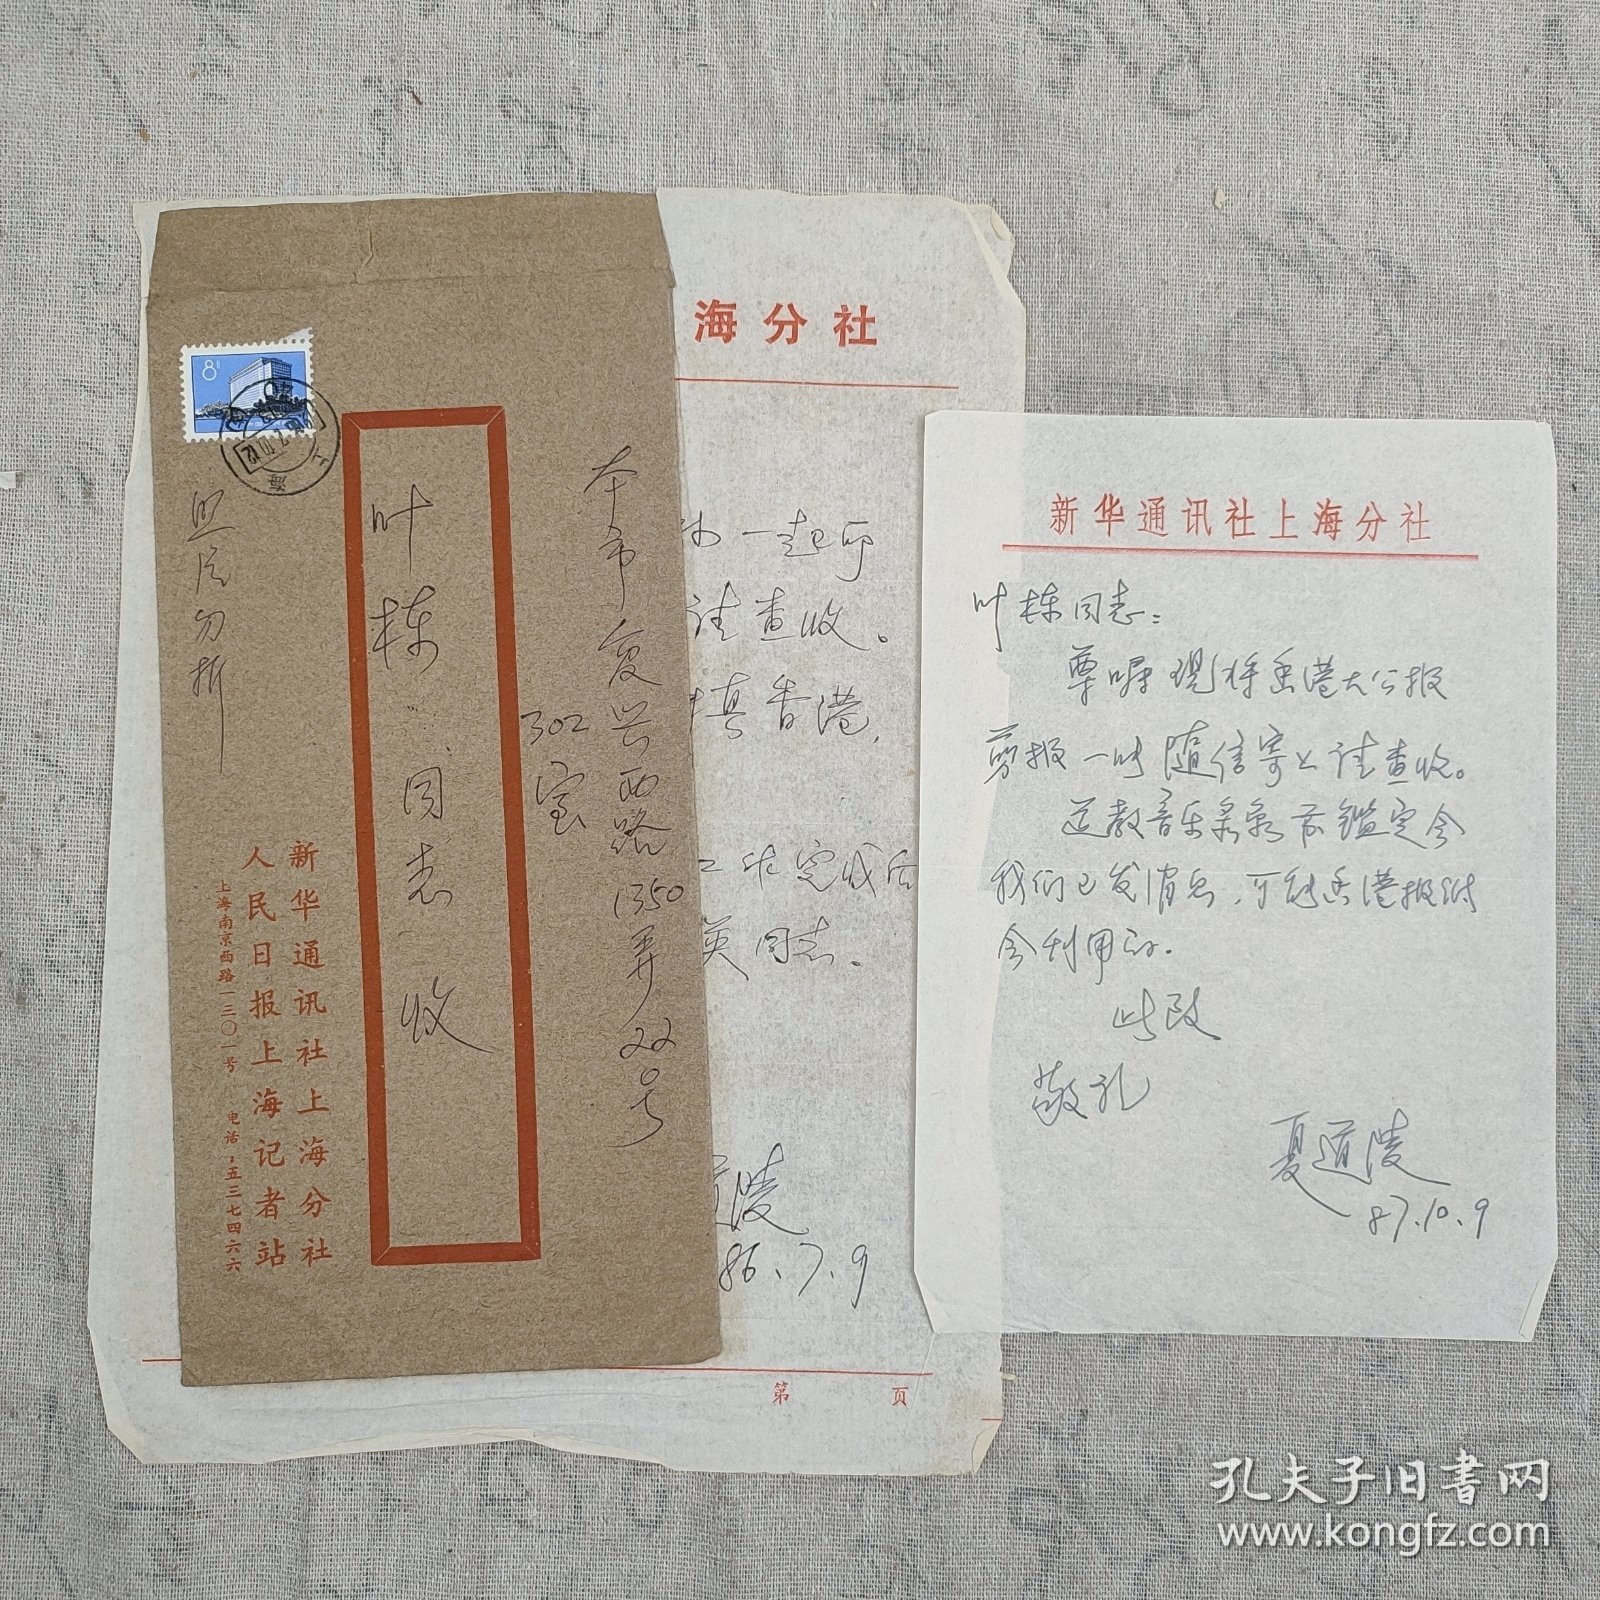 8分
上海
照片勿折
叶栋同志收
本市复兴西路1350弄22号
302室
新华通讯社上海分社
人民日报上海记者站
上海南京西路一三〇一号 电话：五三七四六六
海分社
一起印
请查收。
香港，
工作完成后
英同志。
道陵
86.7.9
第 页
新华通讯社上海分社
叶栋同志：
尊嘱现将香港大公报
剪报一份随信寄上请查收。
道教音乐录象带鉴定会
我们已发消息，可能香港报纸
会利用的。
此致
敬礼
夏道陵
87.10.9
孔夫子旧书网
www.kongfz.com